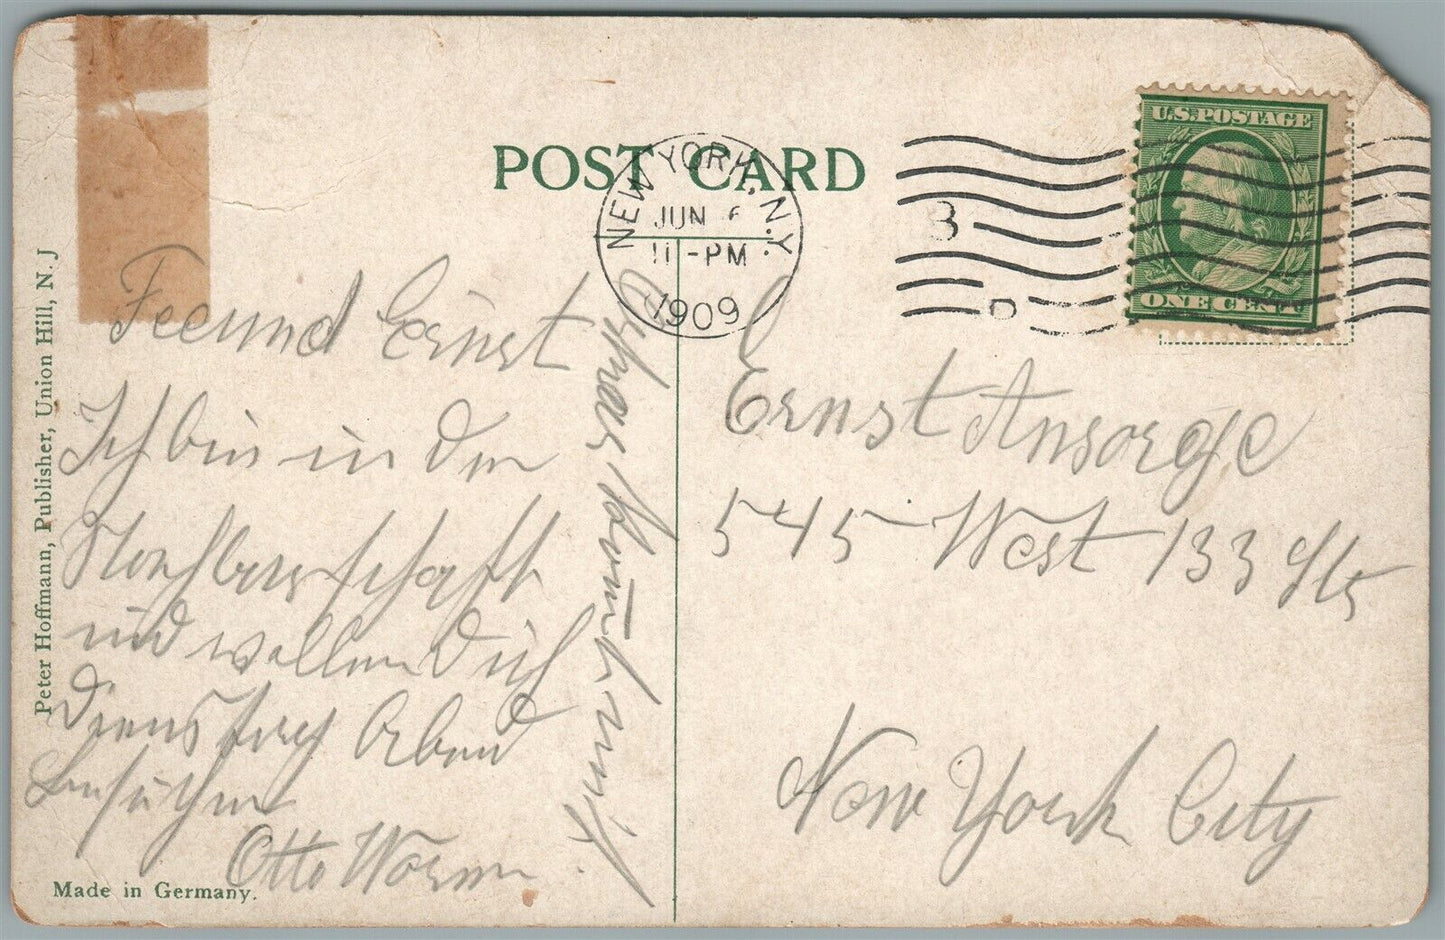 POST CARD
NEW YORK, N.Y.
JUN 6
11-PM
1909
3
D
U.S. POSTAGE
ONE CENT
Peter Hoffmann, Publisher, Union Hill, N. J
Freund Ernst
Ich bin in der
Nachbarschaft
und wollen Dich
Dienstag Abend
besuchen
Otto Worm
Ernst Ansorge
545 West 133 Str
New York City
Made in Germany.